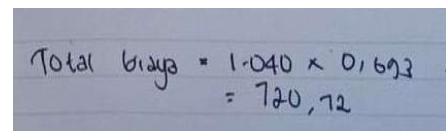 Total biaya = 1.040 x 0,693
= 720,72